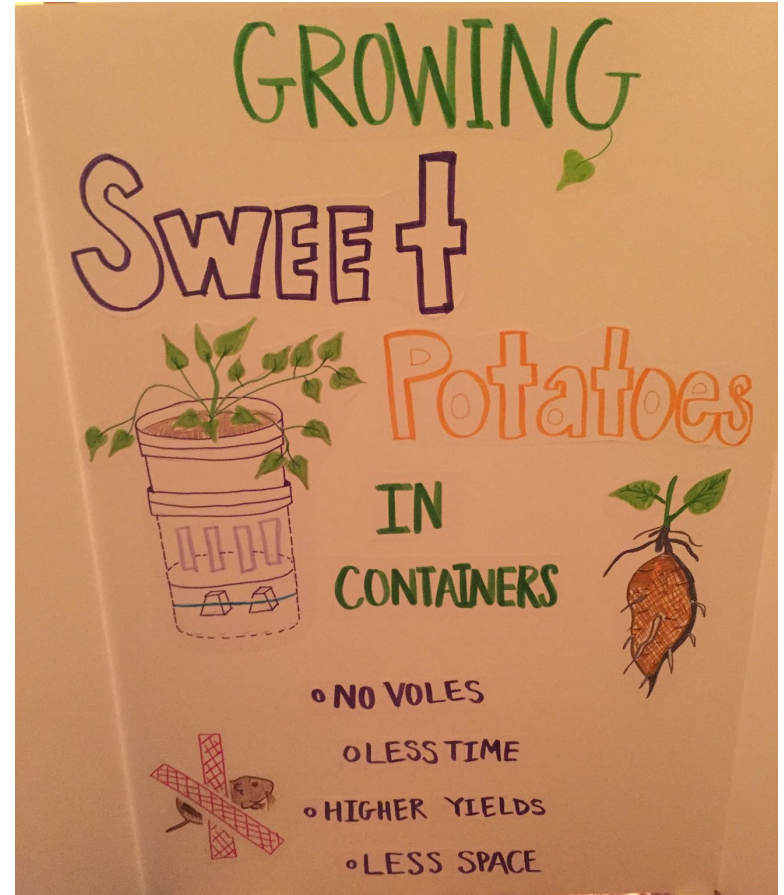 GROWING
SWEEt
Potatoes
IN
CONTAINERS
o NO VOLES
o LESS TIME
o HIGHER YIELDS
o LESS SPACE